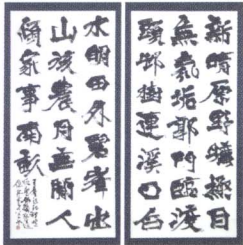 新晴原野曠極目
無氛垢郭門臨渡
頭邨樹連溪口白
水明田外碧峯出
山後農月無閒人
傾家事南畝